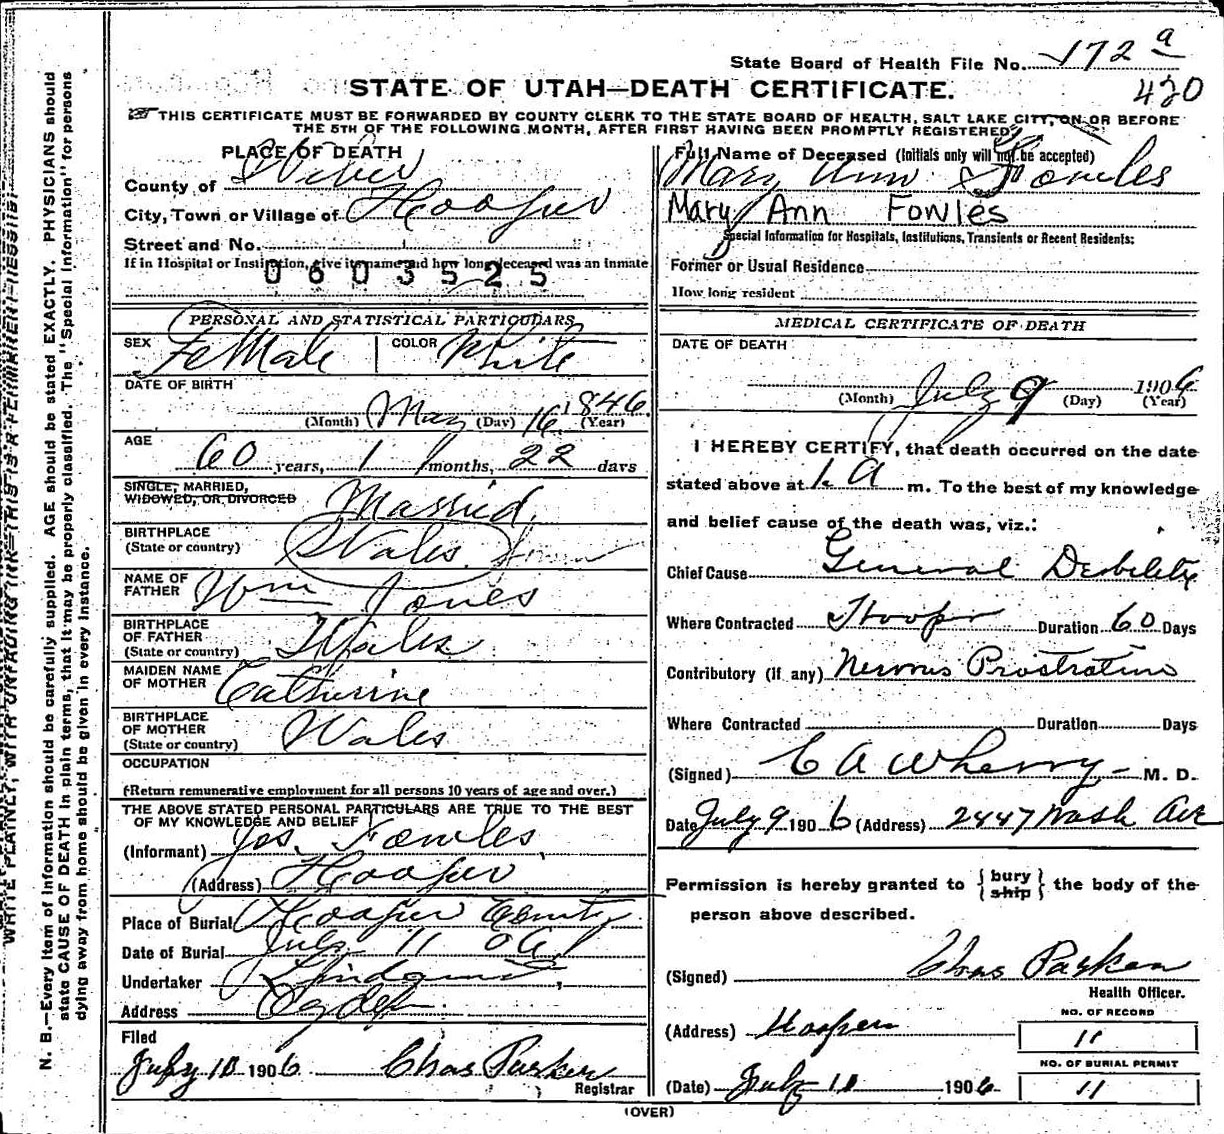 State Board of Health File No. 172 a
420
STATE OF UTAH—DEATH CERTIFICATE.
THIS CERTIFICATE MUST BE FORWARDED BY COUNTY CLERK TO THE STATE BOARD OF HEALTH, SALT LAKE CITY, ON OR BEFORE
THE 5TH OF THE FOLLOWING MONTH, AFTER FIRST HAVING BEEN PROMPTLY REGISTERED
PLACE OF DEATH
County of Weber
City, Town or Village of Hooper
Street and No.
If in Hospital or Institution, give its name and how long deceased was an inmate
0603525
PERSONAL AND STATISTICAL PARTICULARS
SEX FeMale COLOR White
DATE OF BIRTH
(Month) May (Day) 16 1846 (Year)
AGE
60 years, 1 months, 22 days
SINGLE, MARRIED,
WIDOWED, OR DIVORCED Married
BIRTHPLACE
(State or country) Wales
NAME OF
FATHER Wm Jones
BIRTHPLACE
OF FATHER
(State or country) Wales
MAIDEN NAME
OF MOTHER Catherine
BIRTHPLACE
OF MOTHER
(State or country) Wales
OCCUPATION
(Return remunerative employment for all persons 10 years of age and over.)
THE ABOVE STATED PERSONAL PARTICULARS ARE TRUE TO THE BEST
OF MY KNOWLEDGE AND BELIEF
(Informant) Jos. Fowles
(Address) Hooper
Place of Burial Hooper Cemtry
Date of Burial July 11 06
Undertaker Lindquist
Address Ogden
Filed
July 10 1906 Chas Parker
Registrar
Full Name of Deceased (Initials only will not be accepted)
Mary Ann Fowles
Mary Ann Fowles
Special Information for Hospitals, Institutions, Transients or Recent Residents:
Former or Usual Residence
How long resident
MEDICAL CERTIFICATE OF DEATH
DATE OF DEATH
(Month) July 9 (Day) 1906 (Year)
I HEREBY CERTIFY, that death occurred on the date
stated above at 1. A m. To the best of my knowledge
and belief cause of the death was, viz.:
Chief Cause General Debility
Where Contracted Hooper Duration 60 Days
Contributory (if any) Nervous Prostration
Where Contracted Duration Days
(Signed) C A Wherry M. D.
Date July 9 1906 (Address) 2447 Wash Ave
Permission is hereby granted to { bury ship } the body of the
person above described.
(Signed) Chas Parker
Health Officer.
(Address) Hooper
NO. OF RECORD
11
NO. OF BURIAL PERMIT
11
(Date) July 10 1906
(OVER)
WRITE PLAINLY, WITH UNFADING INK—THIS IS A PERMANENT RECORD
N. B.—Every item of information should be carefully supplied. AGE should be stated EXACTLY. PHYSICIANS should
state CAUSE OF DEATH in plain terms, that it may be properly classified. The "Special Information" for persons
dying away from home should be given in every instance.